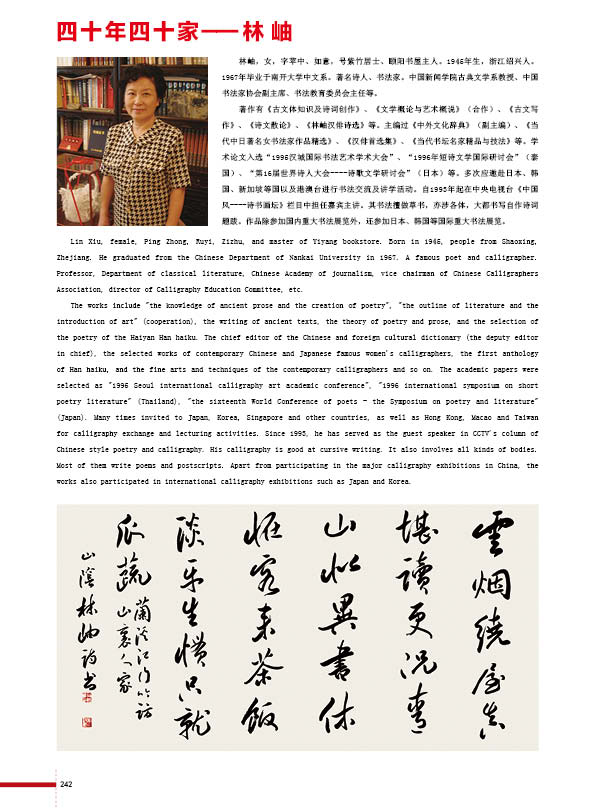 四十年四十家——林 岫
林岫，女，字苹中、如意，号紫竹居士、颐阳书屋主人。1945年生，浙江绍兴人。
1967年毕业于南开大学中文系。著名诗人、书法家。中国新闻学院古典文学系教授、中国
书法家协会副主席、书法教育委员会主任等。
著作有《古文体知识及诗词创作》、《文学概论与艺术概说》（合作）、《古文写
作》、《诗文散论》、《林岫汉俳诗选》等。主编过《中外文化辞典》（副主编）、《当
代中日著名女书法家作品精选》、《汉俳首选集》、《当代书坛名家精品与技法》等。学
术论文入选“1995汉城国际书法艺术学术大会”、“1996年短诗文学国际研讨会”（泰
国）、“第16届世界诗人大会----诗歌文学研讨会”（日本）等。多次应邀赴日本、韩
国、新加坡等国以及港澳台进行书法交流及讲学活动。自1993年起在中央电视台《中国
风----诗书画坛》栏目中担任嘉宾主讲。其书法擅做草书，亦涉各体，大都书写自作诗词
题跋。作品除参加国内重大书法展览外，还参加日本、韩国等国际重大书法展览。
Lin Xiu, female, Ping Zhong, Ruyi, Zizhu, and master of Yiyang bookstore. Born in 1945, people from Shaoxing,
Zhejiang. He graduated from the Chinese Department of Nankai University in 1967. A famous poet and calligrapher.
Professor, Department of classical literature, Chinese Academy of journalism, vice chairman of Chinese Calligraphers
Association, director of Calligraphy Education Committee, etc.
The works include "the knowledge of ancient prose and the creation of poetry", "the outline of literature and the
introduction of art" (cooperation), the writing of ancient texts, the theory of poetry and prose, and the selection of
the poetry of the Haiyan Han haiku. The chief editor of the Chinese and foreign cultural dictionary (the deputy editor
in chief), the selected works of contemporary Chinese and Japanese famous women's calligraphers, the first anthology
of Han haiku, and the fine arts and techniques of the contemporary calligraphers and so on. The academic papers were
selected as "1996 Seoul international calligraphy art academic conference", "1996 international symposium on short
poetry literature" (Thailand), "the sixteenth World Conference of poets - the Symposium on poetry and literature"
(Japan). Many times invited to Japan, Korea, Singapore and other countries, as well as Hong Kong, Macao and Taiwan
for calligraphy exchange and lecturing activities. Since 1993, he has served as the guest speaker in CCTV's column of
Chinese style poetry and calligraphy. His calligraphy is good at cursive writing. It also involves all kinds of bodies.
Most of them write poems and postscripts. Apart from participating in the major calligraphy exhibitions in China, the
works also participated in international calligraphy exhibitions such as Japan and Korea.
雲烟繞屋真
堪讀更况青
山似異書休
怪客来茶飯
淡平生慣只就
瓜蔬
蘭溪江
山裏人家
山陰林岫
242